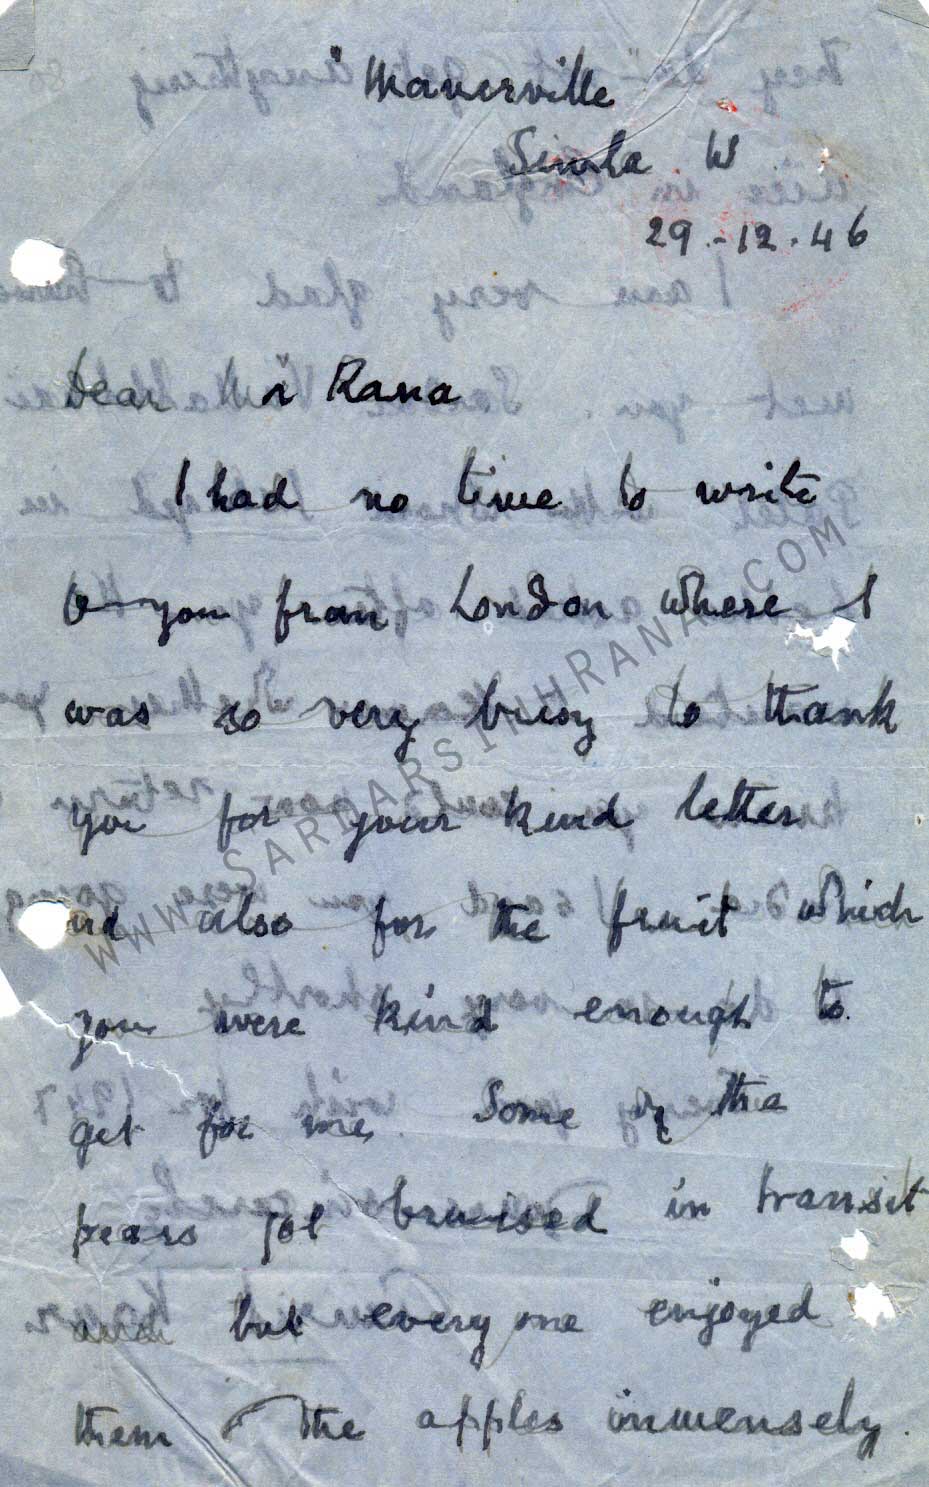 "Manorville
Simla W
29.-12.46
Dear Mr Rana
I had no time to write
to you from London where I
was so very busy to thank
you for your kind letter
and also for the fruit which
you were kind enough to
get for me. Some of the
pears got bruised in transit
but everyone enjoyed
them & the apples immensely.
WWW.SARDARSINHRANA.COM